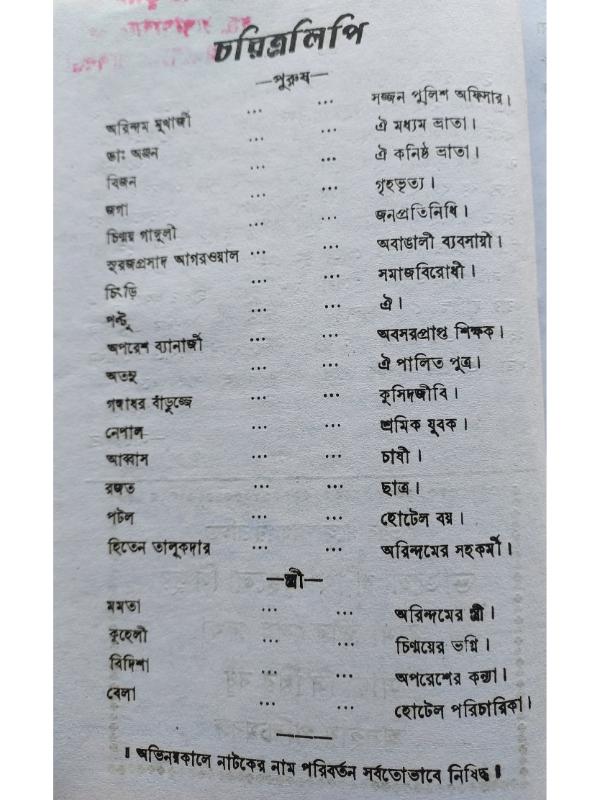 চরিত্রলিপি
—পুরুষ—
অরিন্দম মুখার্জী ... ... সজ্জন পুলিশ অফিসার।
ডাঃ অঞ্জন ... ... ঐ মধ্যম ভ্রাতা।
বিজন ... ... ঐ কনিষ্ঠ ভ্রাতা।
জগা ... ... গৃহভৃত্য।
চিন্ময় গাঙ্গুলী ... ... জনপ্রতিনিধি।
সুরজপ্রসাদ আগরওয়াল ... ... অবাঙালী ব্যবসায়ী।
চিংড়ি ... ... সমাজবিরোধী।
পল্টু ... ... ঐ।
অপরেশ ব্যানার্জী ... ... অবসরপ্রাপ্ত শিক্ষক।
অতনু ... ... ঐ পালিত পুত্র।
গদাধর বাঁড়ুজ্জে ... ... কুসিদজীবি।
নেপাল ... ... শ্রমিক যুবক।
আব্বাস ... ... চাষী।
ব্রজত ... ... ছাত্র।
পটল ... ... হোটেল বয়।
হিতেন তালুকদার ... ... অরিন্দমের সহকর্মী।
—স্ত্রী—
মমতা ... ... অরিন্দমের স্ত্রী।
কুহেলী ... ... চিন্ময়ের ভগ্নি।
বিদিশা ... ... অপরেশের কন্যা।
বেলা ... ... হোটেল পরিচারিকা।
॥ অভিনয়কালে নাটকের নাম পরিবর্তন সর্বতোভাবে নিষিদ্ধ ॥